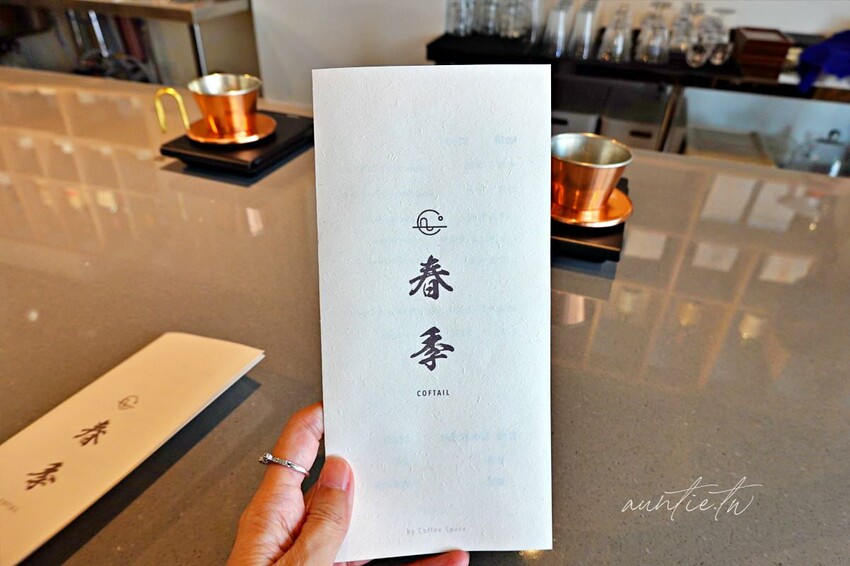 春
季
COFTAIL
by Coffee Space
春
季
COFTAIL
auntie.tw